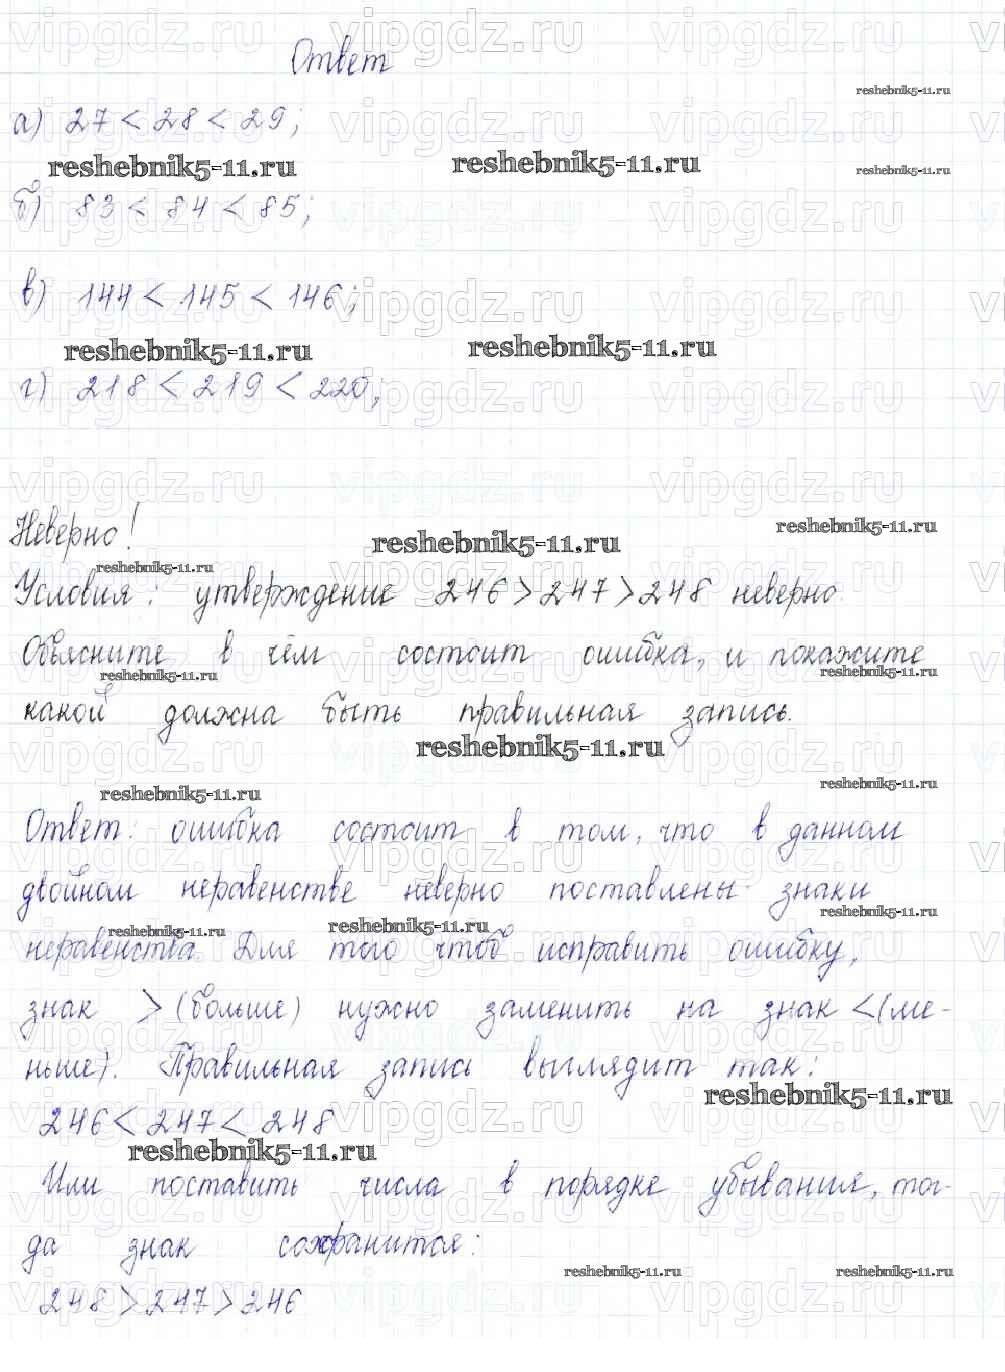 Ответ
а) 27 < 28 < 29;
б) 83 < 84 < 85;
в) 144 < 145 < 146;
г) 218 < 219 < 220;
Неверно!
Условия: утверждение 246 > 247 > 248 неверно.
Объясните в чём состоит ошибка, и покажите
какой должна быть правильная запись.
Ответ: ошибка состоит в том, что в данном
двойном неравенстве неверно поставлены знаки
неравенства. Для того чтоб исправить ошибку,
знак > (больше) нужно заменить на знак < (ме-
ньше). Правильная запись выглядит так:
246 < 247 < 248
Или поставить числа в порядке убывания, тог-
да знак сохранится:
248 > 247 > 246
vipgdz.ru
reshebnik5-11.ru